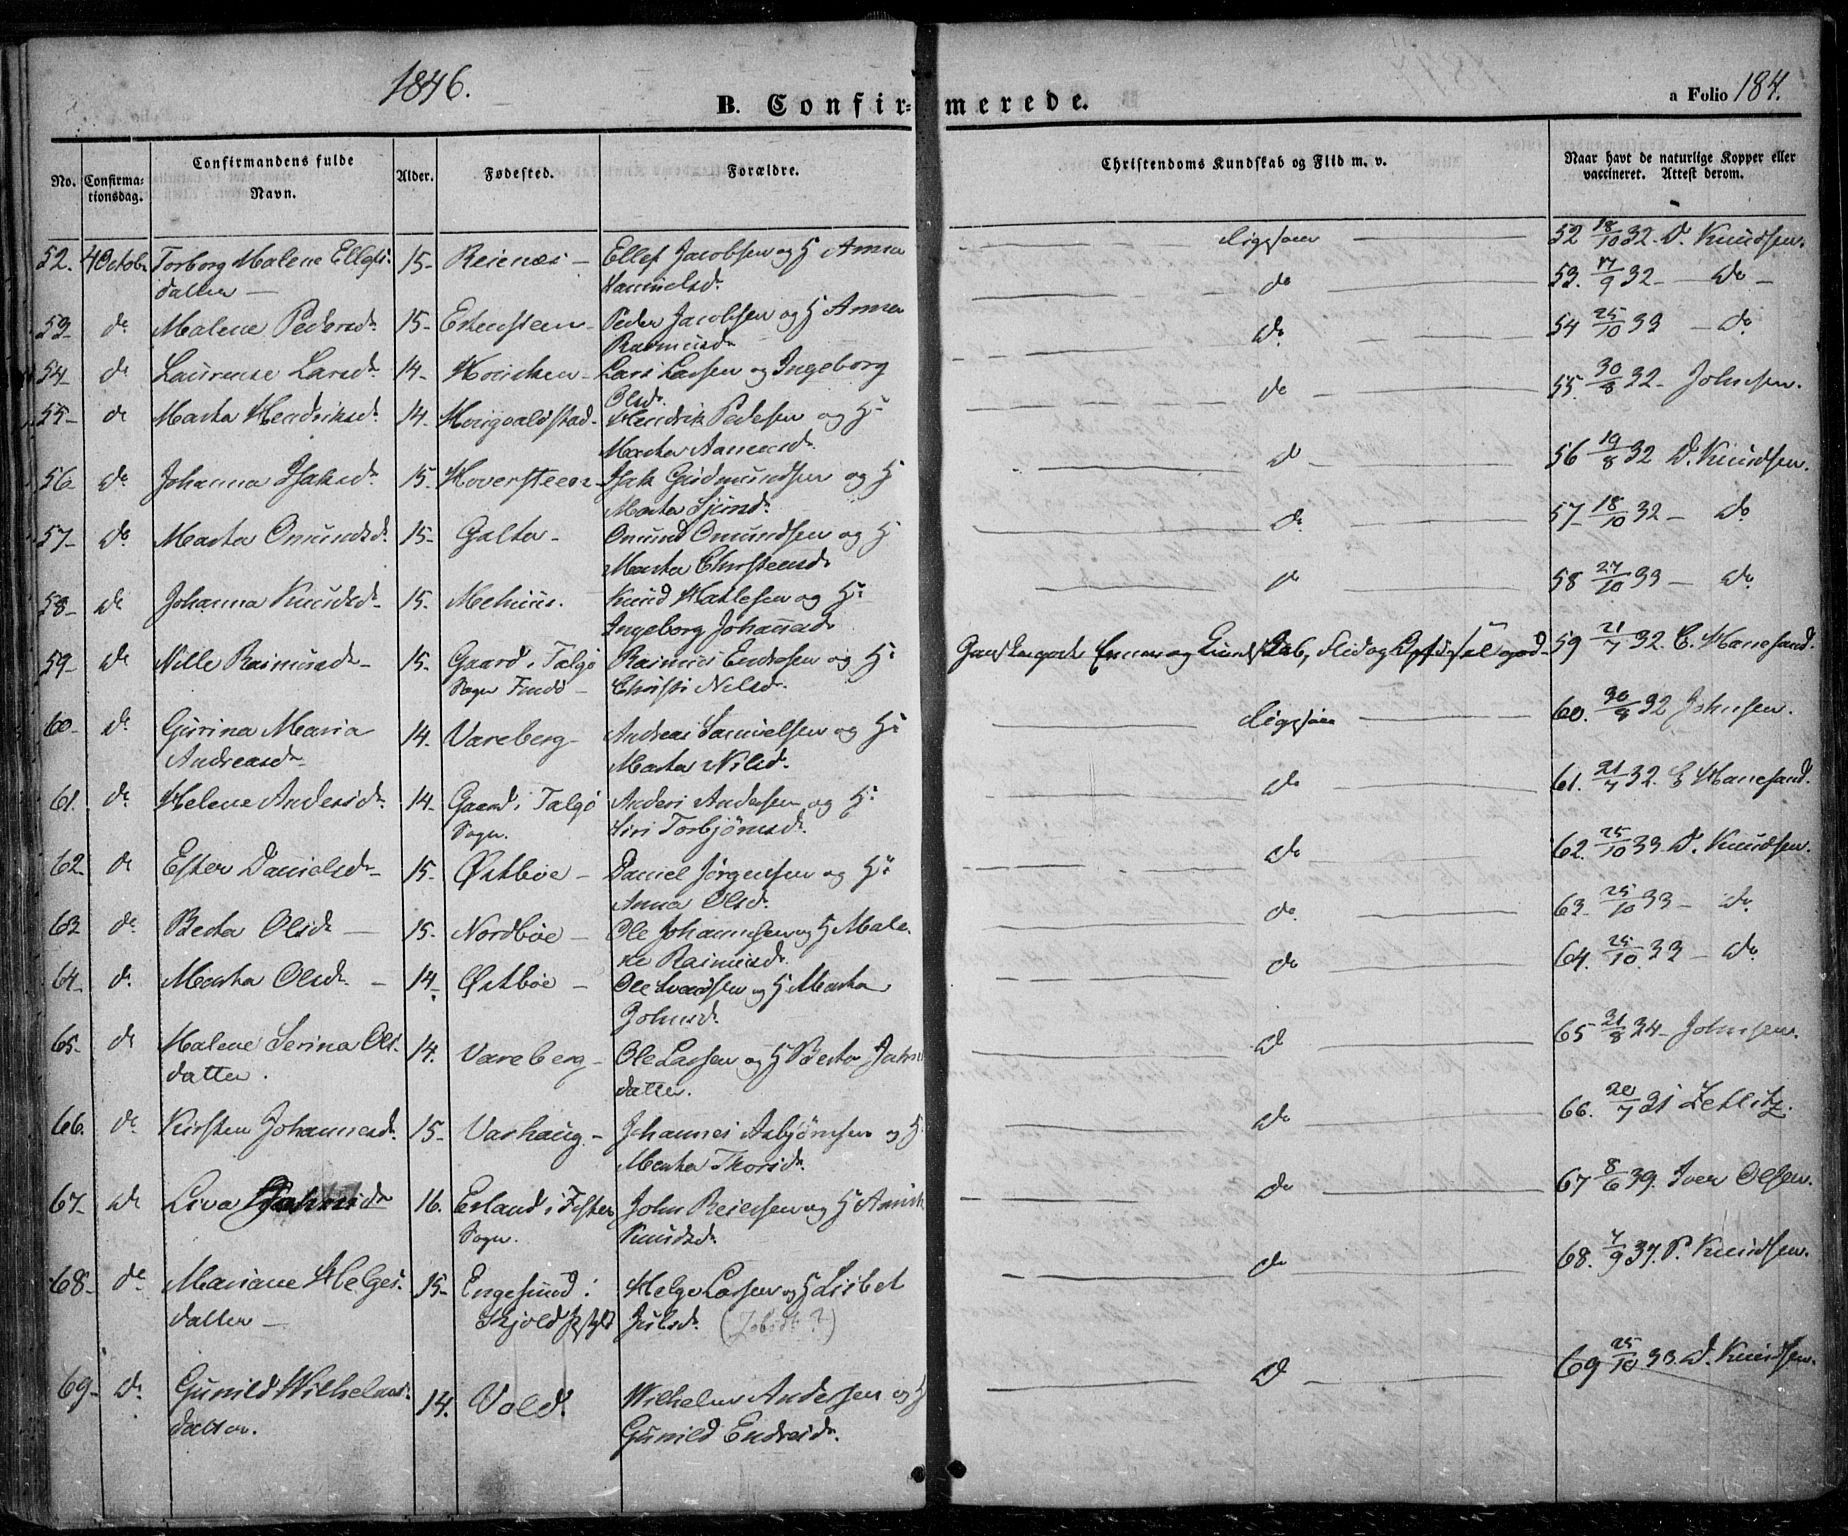 1846.
B. Confirmerede.
a Folio 184.
No.
Confirmationsdag.
Confirmandens fulde Navn.
Alder.
Fødested.
Forældre.
Christendoms Kundskab og Flid m. v.
Naar havt de naturlige Kopper eller vaccineret. Attest derom.
52. 4 Octob. Torborg Malene Ellefs- 15- Reienæs - Ellef Jacobsen og H Anna
datter - Samuelsd.
53- do Malene Pedersd. 15- Peder Jacobsen og H Anna
Rasmusd.
54- do Laurense Larsd. 14- Lars Larsen og Ingeborg
Olsd.
55- do Marta Hendriksd. 14. Hendrik Pedersen og H:
Marta
56- do Johanna Isaksd. 15. Isak Gudmundsen og H
Marta
57- do Marta Omundsd. 15- Galta - Omund Omundsen og H
Marta Christensd.
58- do Johanna Knudsd. 15. Mehuus. Knud og H:
Ingeborg Johannesd.
59- do Nille Rasmusd. - 15. Gaard i Talgø Rasmus Endresen og H:
Sogn Findø - Christi Nelsd.
60- do Gurina Maria 14. Vareberg - Andreas Samuelsen og H:
Andreasd. Marta Nilsd.
61. do Helene Andersd. 14- Gaard i Talgø Anders Andersen og H:
Sogn. Siri Torbjørnsd.
62- do Ester Danielsd. - 15- Østbøe - Daniel Jørgensen og H:
Anna Olsd.
63 do Berta Olsd. - 15. Nordbøe - Ole Johannesen og H Male-
ne Rasmusd.
64- do Marta Olsd. - 14- Østbøe - Ole og H Marta
Johnsd.
65- do Malene Serina Ols- 14. Vareberg - Ole Larsen og H Berta
datter. datter.
66. do Kirsten Johannesd. 15- Varhaug - Johannes Asbjørnsen og H.
Marta Thorsd.
67- do Liva Johnsd. 16. Erland i Fister John Reiersen og H
Sogn. Knudsd.
68- do Mariane Helges- 15- Engesund i Helge Larsen og H Lisbet
datter - Skjold Juulsd.
69- do Gunild Wilhelms- 14. Vold. Wilhelm Andersen og H
datter. Gunild Endresd.
ligesaa
do
do
do
do
do
do
Ganske god Evner og Kundskab, Flid og Opførsel god-
ligesaa
do
do
do
do
do
do
do
do
do
52 18/10 32. D. Knudsen.
53. 17/9 32 - do -
54 25/10 33 - do
55. 30/8 32- Johnsen.
56 19/8 32 D. Knudsen.
57- 18/10 32 - do
58 27/10 33 - do
59 21/7 32. E. Hanesand.
60. 30/8 32 Johnsen.
61. 21/7 32. E Hanesand.
62. 25/10 33. D. Knudsen.
63- 25/10 33 - do
64. 25/10 33 - do
65 21/8 34- Johnsen.
66. 20/7 31 Zetlitz.
67 8/6 39. Iver Olsen.
68. 7/9 37. P. Knudsen.
69 25/10 33 D. Knudsen.